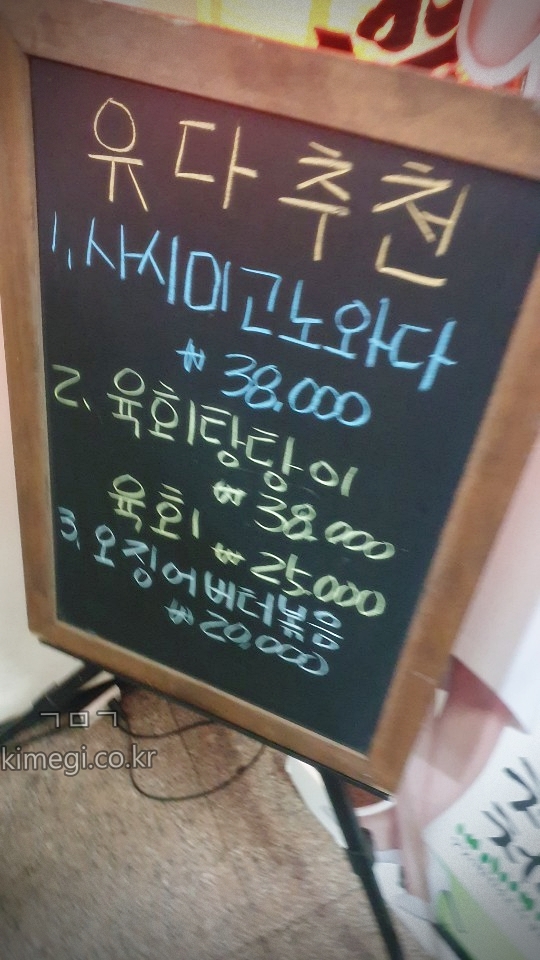 유다추천
1, 사시미고노와다
₩ 38.000
2、육회탕탕이
₩ 38.000
육회 ₩ 25.000
3, 오징어버터볶음
₩ 20,000
ㄱㅁㄱ
kimegi.co.kr